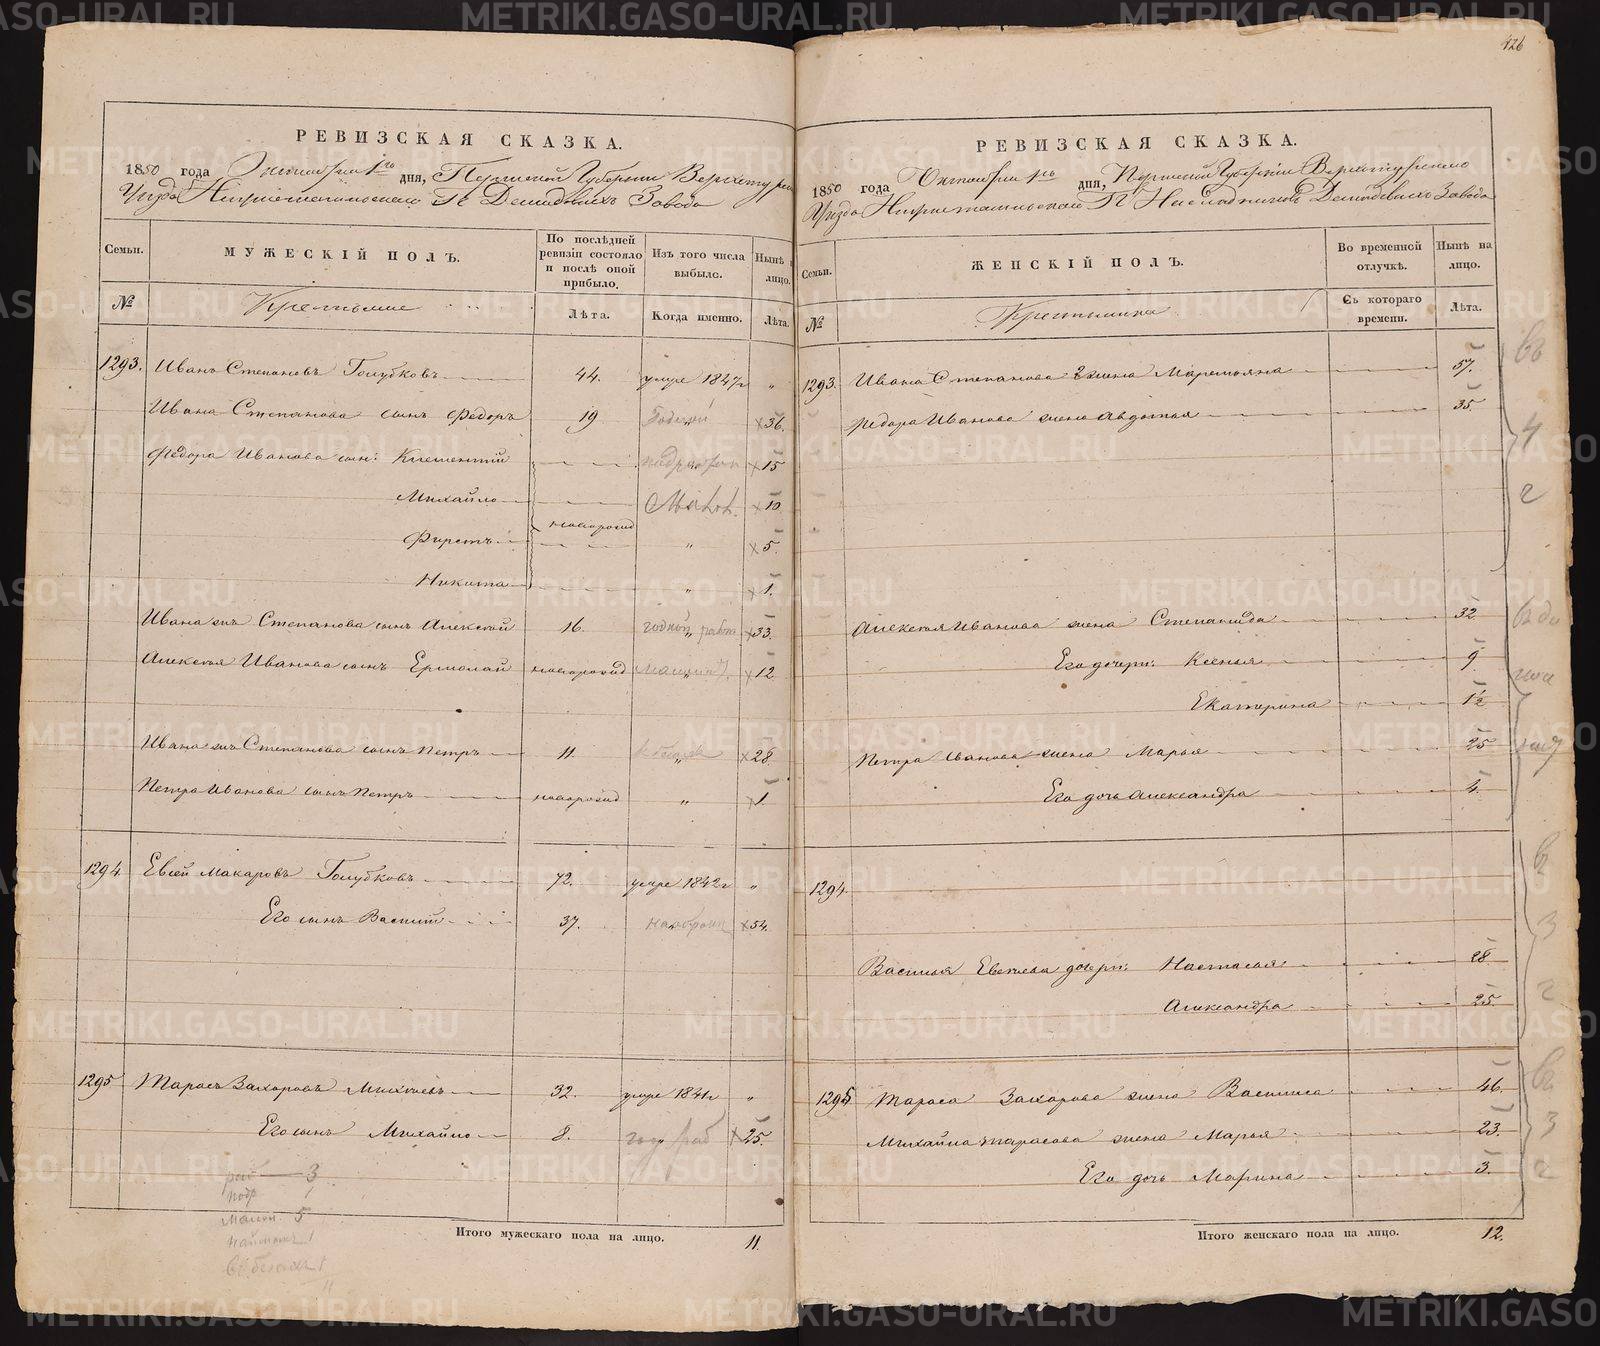 426
РЕВИЗСКАЯ СКАЗКА.
1850 года Октября 1го дня, Пермской Губернии Верхотурскаго
Уезда Нижнетагильскаго Гг Демидовыхъ Завода
Семьи.
МУЖЕСКІЙ ПОЛЪ.
По послѣдней ревизіи состояло и послѣ оной прибыло.
Изъ того числа выбыло.
Нынѣ на лицо.
№
Крестьяне
Лѣта.
Когда именно.
Лѣта.
1293. Иванъ Степановъ Голубковъ 44. умре 1847г „
Ивана Степанова сынъ Федоръ 19 годной 36.
Федора Иванова сын: Климентій подростк 15
Михайло Малол. 10
Фирстъ новорожд „ 5.
Никита „ 1.
Ивана жъ Степанова сынъ Алексѣй 16. годной работ 33.
Алексѣя Иванова сынъ Ермолай новорожд малол 12
Ивана жъ Степанова сынъ Петръ 11. „ 28
Петра Иванова сынъ Петръ новорожд „ 1
1294. Евсей Макаровъ Голубковъ 72. умре 1842г „
Его сынъ Василій 37. 54.
1295 Тарасъ Захаровъ Михѣевъ 32. умре 1841г „
Его сынъ Михайло 8. год раб 25.
раб 3
подр 1
малол. 5
1
1
11
Итого мужескаго пола на лицо. 11.
РЕВИЗСКАЯ СКАЗКА.
1850 года Октября 1го дня, Пермской Губерніи Верхотурскаго
Уезда Нижнетагильскаго Гг Наслѣдниковъ Демидовыхъ Завода
Семьи.
ЖЕНСКІЙ ПОЛЪ.
Во временной отлучкѣ.
Нынѣ на лицо.
№
Крестьянки
Съ котораго времени.
Лѣта.
1293. Ивана Степанова 2 жена Маремьяна 57.
Федора Иванова жена Авдотья 35.
Алексѣя Иванова жена Степанида 32
Его дочери: Ксенья 9
Екатерина 1½
Петра Иванова жена Марья 25
Его дочь Александра 4.
1294.
Василья Евсѣева дочери: Настасья 28
Александра 25.
1295 Тараса Захарова жена Василиса 46.
Михайла Тарасова жена Марья 23.
Его дочь Марина 3.
Итого женскаго пола на лицо. 12.
METRIKI.GASO-URAL.RU